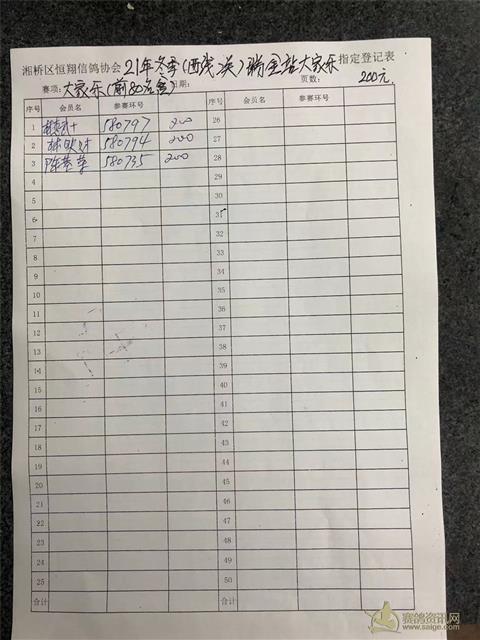 湘桥区恒翔信鸽协会 21年冬季(西线.英)瑞金站大家乐 指定登记表
赛项: 大家乐(前80名会) 日期: 页数: 200元
序号 会员名 参赛环号 序号 会员名 参赛环号
1 580797 200 26
2 林欧财 580794 200 27
3 陈基荣 580735 200 28
4 29
5 30
6 31
7 32
8 33
9 34
10 35
11 36
12 37
13 38
14 39
15 40
16 41
17 42
18 43
19 44
20 45
21 46
22 47
23 48
24 49
25 50
合计 合计
赛鸽资讯网
www.saige.com